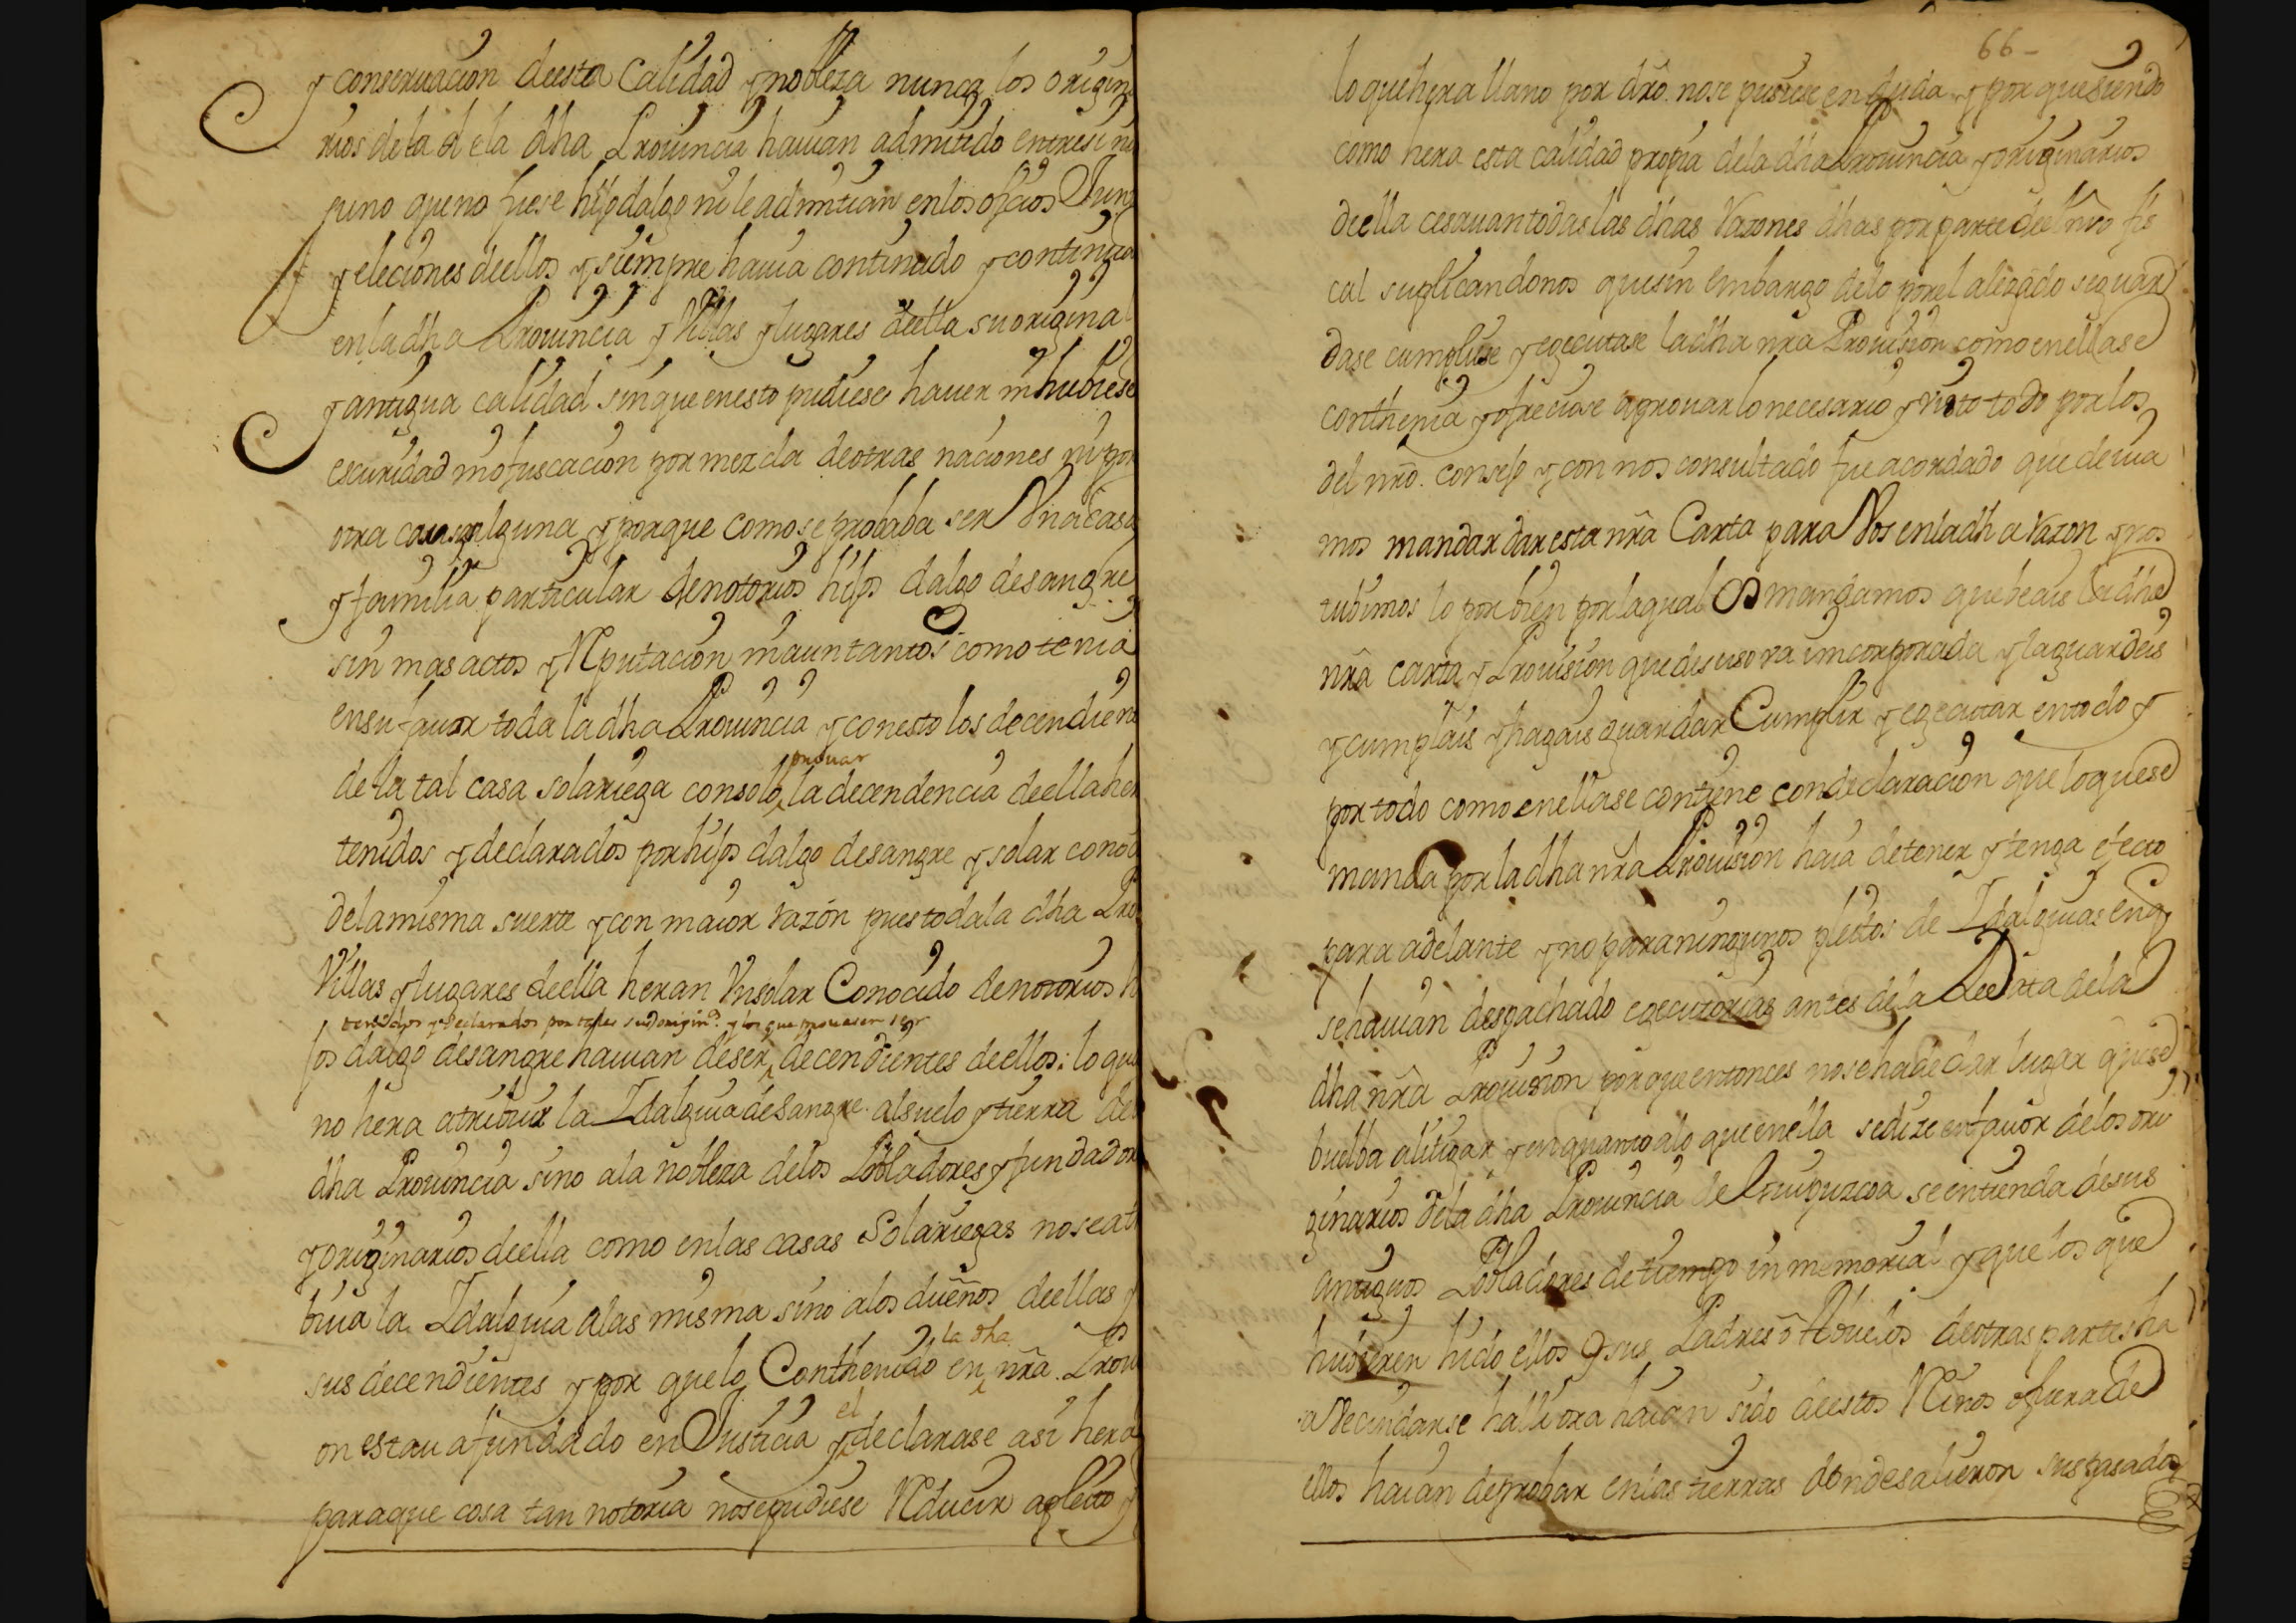 y conseruacion deesta Calidad y nobleza nunca los origin
rios de la de la dha Prouincia hauian admitido entresi ni
guno que no fuese hijodalgo ni le admitian en los oficios Jun
y eleciones deellos y siempre hauia continado y continua
en la dha Prouincia y Villas y lugares deella su origina
y antigua calidad sin que en esto pudiese hauer ni hubiese
escuridad ni ofuscacion por mezcla de otras naciones ni por
otra causa alguna y porque como se probaba ser Vna casa
y familia particular de notorios hijos dalgo de sangre
sin mas actos y Reputacion ni aun tantos como tenia
en su fauor toda la dha Prouincia y con esto los decendien
de la tal casa solariega con solo prouar la decendencia deella her
tenidos y declarados por hijos dalgo de sangre y solar conoc
de la misma suerte y con maior razón pues toda la dha Pro
Villas y lugares deella heran Vn solar Conocido de notorios h
tenidos y declarados por tales sus origin.s y los que prouasen ser
jos dalgo de sangre hauian de ser decendientes deellos: lo que
no hera atribuir la Idalguia de sangre al suelo y tierra de la
dha Prouincia sino a la nobleza de los Pobladores y fundador
y originarios deella como en las casas Solariegas no se atri
buia la Idalguia a las misma sino a los dueños deellas y
sus decendientes y por que lo Conthenido en la dha nra. Proui
on estaua fundado en Justicia y el declarase asi hera
para que cosa tan notoria no se pudiese Reducir a pleito y
66-
lo que hera llano por dro. no se pusiese en duda y por que siendo
como hera esta calidad propia de la dha Prouincia y originarios
deella cesauan todas las dhas razones dhas por parte deel nro fis
cal suplicandonos que sin embargo de lo por el alegado se guar
dase cumpliese y egecutase la dha nra Prouision como en ella se
conthenia y ofreciose aprouar lo necesario y visto todo por los
del nro. consejo y con nos consultado fue acordado que deuia
mos mandar dar esta nra Carta para Vos en la dha razon y nos
tubimos lo por bien por la qual Os mandamos que beais la dha
nra carta y Prouision que de suso va incorporada y la guardeis
y cumplais y hagais guardar Cumplir y egecutar en todo y
por todo como en ella se contiene con declaracion que lo que se
manda por la dha nra Prouision haia de tener y tenga efecto
para adelante y no para ningunos pleitos de Idalguias en q
se hauian despachado egecutorias antes de la Data de la
dha nra Prouision porque entonces no se ha de dar lugar que se
buelba a litigar y en quanto a lo que en ella se dize en fauor de los ori
ginarios de la dha Prouincia de Guipuzcoa se entienda de sus
antiguos Pobladores de tiempo inmemorial y que los que
hubieren hido ellos O sus Padres ô Abuelos de otras partes ha
avecindarse halli ora haian sido de estos Reinos o fuera de
ellos haian de probar en las tierras donde salieron sus pasados